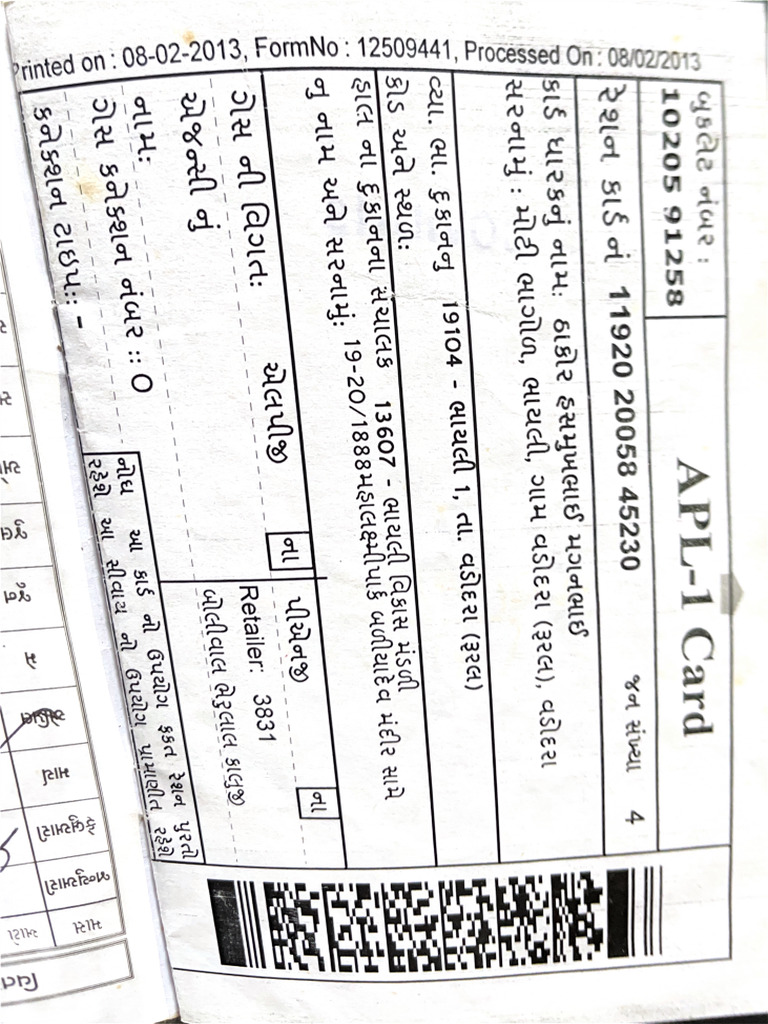 Printed on : 08-02-2013, FormNo : 12509441, Processed On : 08/02/2013
બુકલેટ નંબર :
10205 91258
APL-1 Card
રેશન કાર્ડ નં 11920 20058 45230 જન સંખ્યા 4
કાર્ડ ધારકનું નામ: ઠાકોર હસમુખભાઈ મગનભાઈ
સરનામું : મોટી ભાગોળ, ભાયલી, ગામ વડોદરા (રૂરલ), વડોદરા
વ્યા. ભા. દુકાનનુ 19104 - ભાયલી 1, તા. વડોદરા (રૂરલ)
કોડ અને સ્થળ:
હાલ ના દુકાનના સંચાલક 13607 - ભાયલી વિકાસ મંડળી
નુ નામ અને સરનામું: 19-20/1888મહાલક્ષ્મીપાર્ક બળીયાદેવ મંદીર સામે
ગેસ ની વિગત: એલપીજી ના પીએનજી ના
એજન્સી નું
નામ:
Retailer: 3831
ગેસ કનેકશન નંબર :: 0
કનેકશન ટાઇપ:: -
નોંધ આ કાર્ડ નો ઉપયોગ ફકત રેશન પુરતો
રહેશે આ સીવાય નો ઉપયોગ પામાણીત રહેશે
માર્ચ
ફેબ્રુઆરી
જાન્યુઆરી
માસ